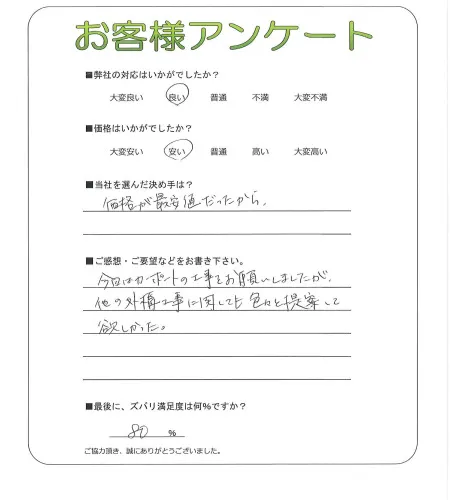 お客様アンケート
■弊社の対応はいかがでしたか？
大変良い 良い 普通 不満 大変不満
■価格はいかがでしたか？
大変安い 安い 普通 高い 大変高い
■当社を選んだ決め手は？
価格が最安値だったから。
■ご感想・ご要望などをお書き下さい。
今回はカーポートの工事をお願いしましたが、
他の外構工事に関しても色々と提案して
欲しかった。
■最後に、ズバリ満足度は何％ですか？
80 ％
ご協力頂き、誠にありがとうございました。